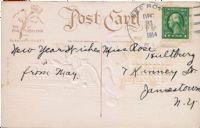 Post Card
DEC
31
1914
New Year Wishes Miss Rose
from May.
Hultburg
7 Kinney St
Jamestown
N.Y